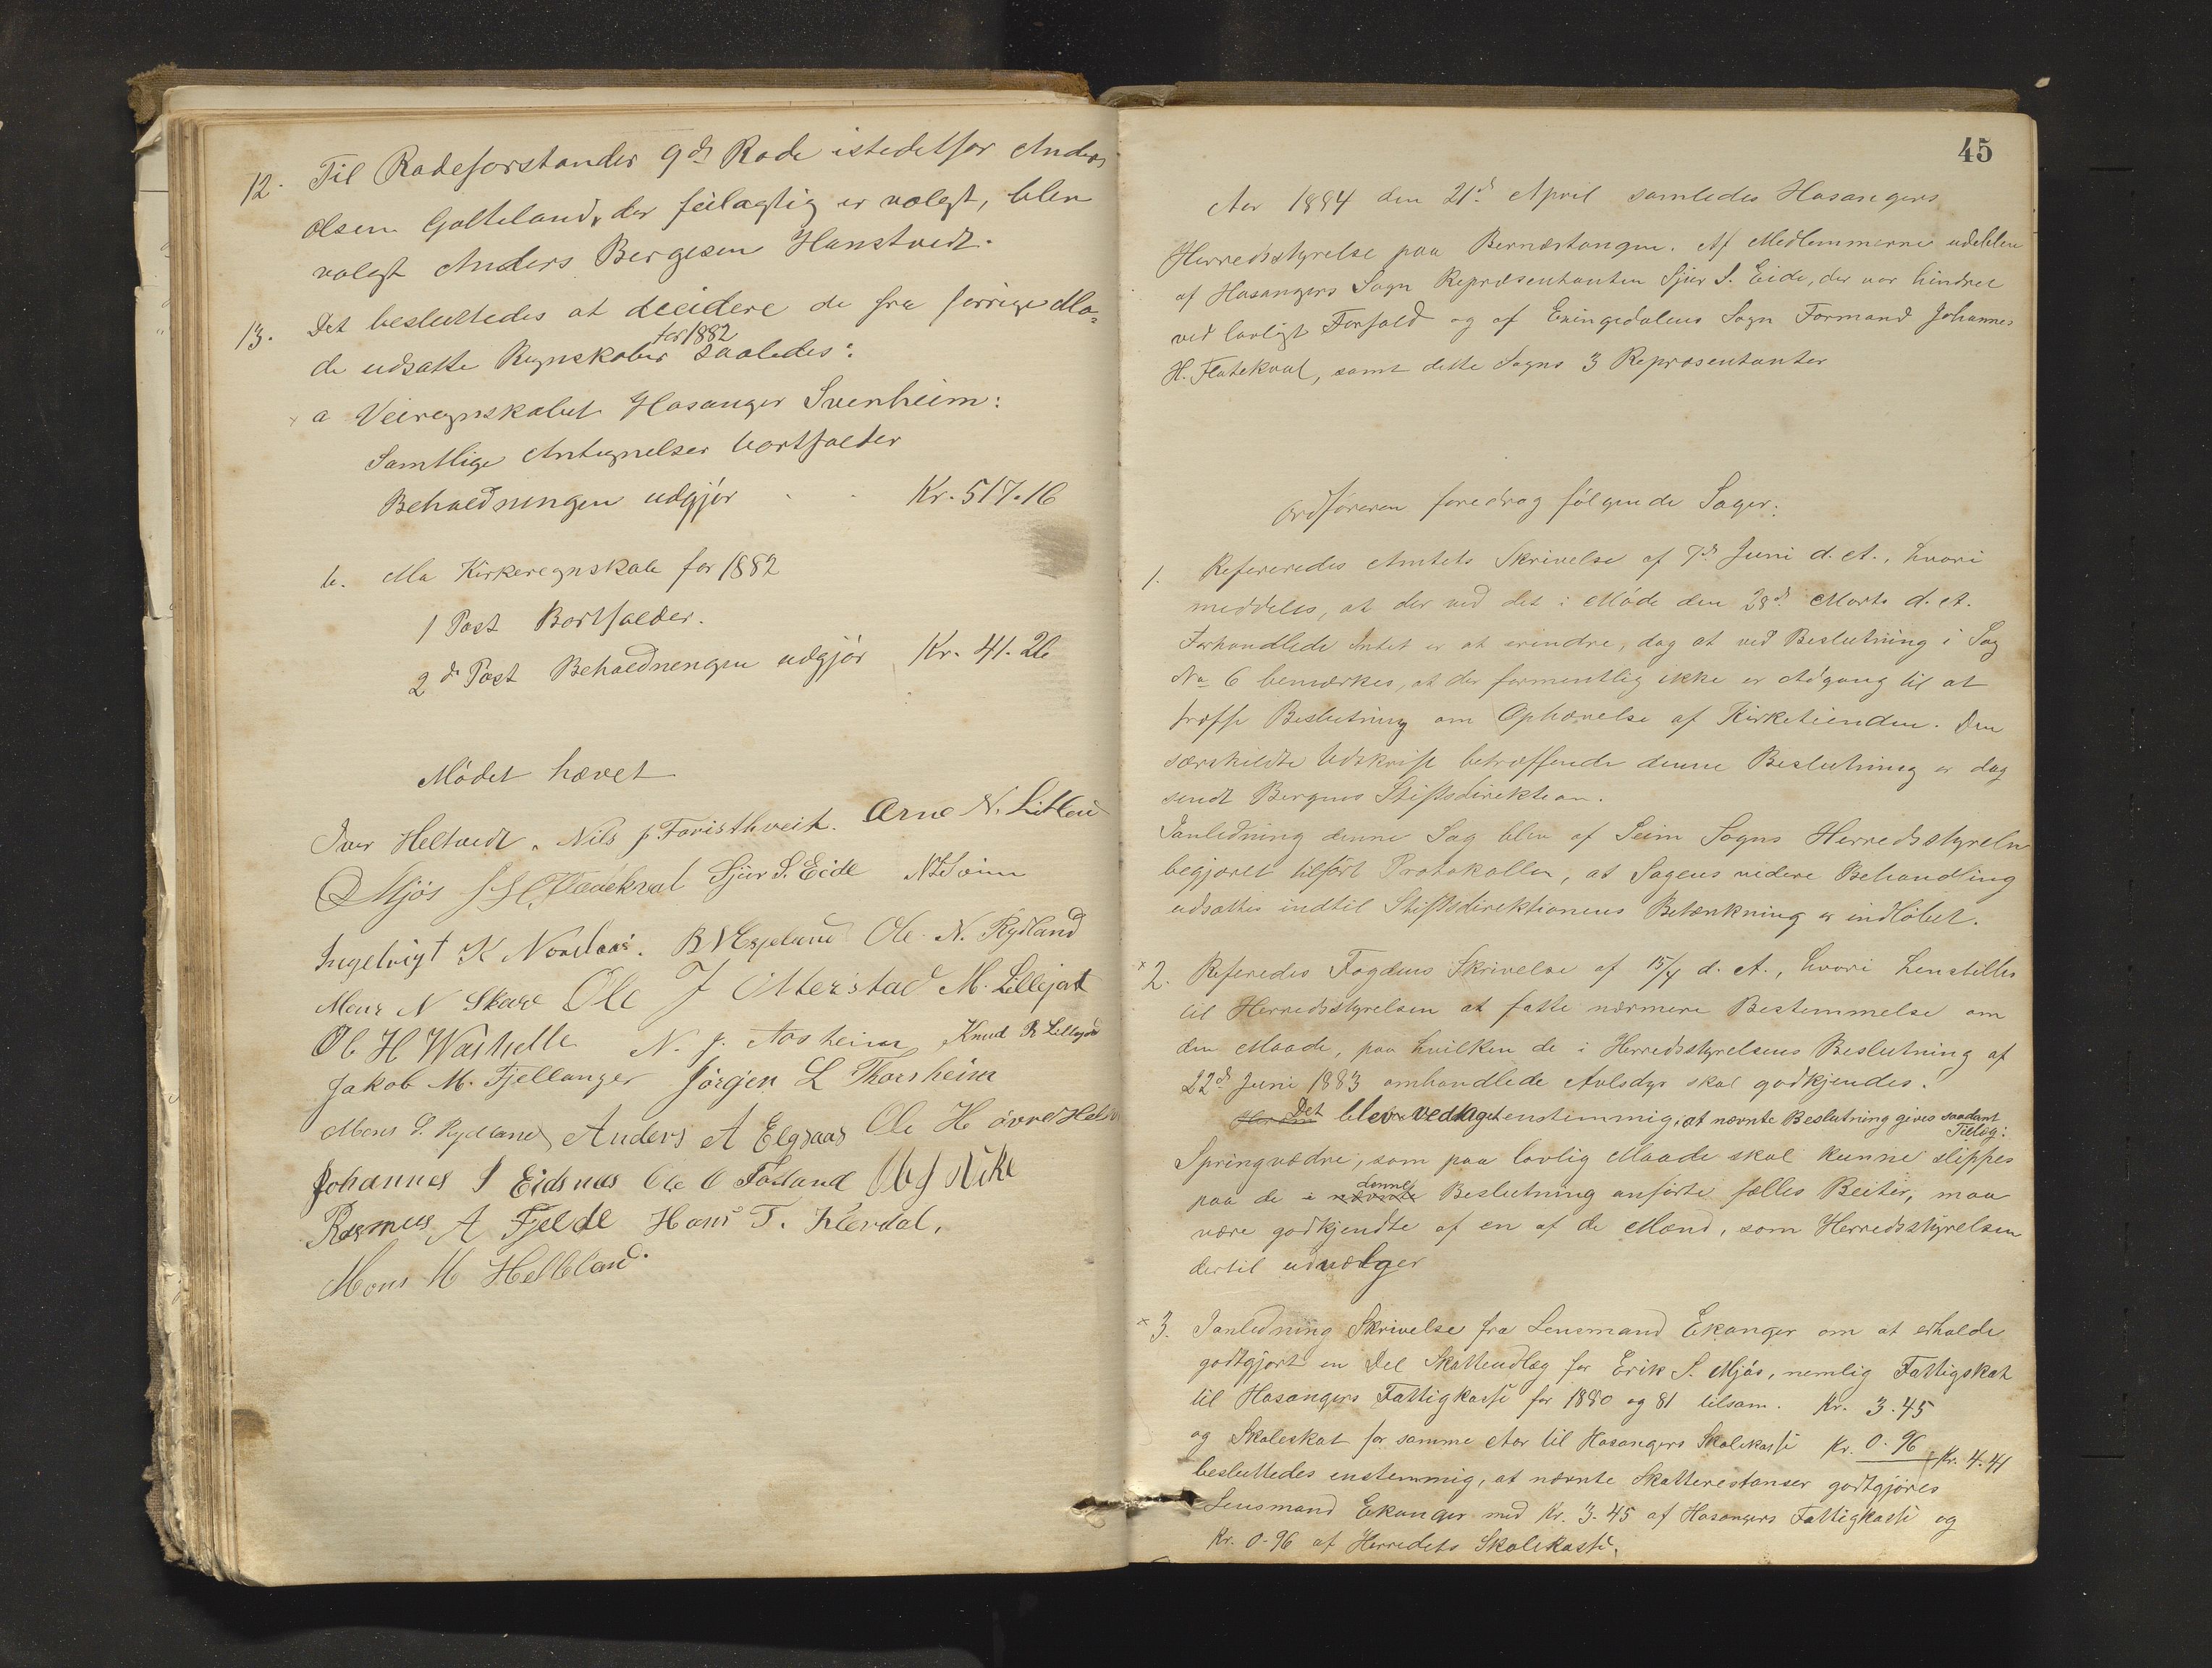 12. Til Rodeforstander 9de Rode istedetfor Anders
Olsen Golteland, der feilagtig er valgt, blev
valgt Anders Bergesen Hanstvedt.
13. Det besluttedes at decidere de fra forrige Mø-
de udsatte Regnskaber for 1882 saaledes:
a Veiregnskabet Hosanger Svenheim:
Samtlige Antegnelser bortfalder
Beholdningen udgjør Kr. 517.16
b. Mo Kirkeregnskab for 1882
1 Post Bortfalder.
2de Post Beholdningen udgjør Kr. 41.26
Mødet hævet
Iver Heltvedt. Nils J. Faristhveit. Arne N. Litland
O Mjøs J H. Fladekval Sjur S. Eide
Ingebrigt K Nordaas. B N Espeland Ole N. Rydland
Mons N Skare Ole J Otterstad M. Lillejord
Ol H Walhelle N. J. Aasheim Knud R Lillejord
Jakob M. Fjellanger Jørgen L Thorsheim
Mons S. Rydland Anders A Elgsaas Ole H øvre Hel
Johannes I Eidsnes Ole O Fosland
Rasmus A Fjelde Hans T. Klevdal.
Mons M Helleland.
45
Aar 1884 den 21de April samledes Hosangers
Herredsstyrelse paa Bernæstangen. Af Medlemmerne udeblev
af Hosangers Sogn Repræsentanten Sjur S. Eide, der var hindret
ved lovligt Forfald og af Exingedalens Sogn Formand Johannes
H. Flatekval, samt dette Sogns 3 Repræsentanter
Ordføreren foredrog følgende Sager:
1. Refereredes Amtets Skrivelse af 7de Juni d. A., hvori
meddeles, at der ved det i Møde den 28de Marts d. A.
Forhandlede Intet er at erindre, dog at ved Beslutning i Sag
No 6 bemærkes, at der formentlig ikke er Adgang til at
træffe Beslutning om Ophævelse af Kirketienden. Den
særskildte Udskrift betræffende denne Beslutning er dog
sendt Bergens Stiftsdirektion.
Ianledning denne Sag blev af Seim Sogns Herredsstyrelse
begjæret tilført Protokollen, at Sagens videre Behandling
udsættes indtil Stiftsdirektionens Betænkning er indløbet.
× 2. Referedes Fogdens Skrivelse af 15/4 d. A., hvori henstilles
til Herredsstyrelsen at fatte nærmere Bestemmelse om
den Maade, paa hvilken de i Herredsstyrelsens Beslutning af
22de Juni 1883 omhandlede Avlsdyr skal godkjendes.
Det blev vedtaget enstemmig, at nævnte Beslutning gives saadant
Tillæg:
Springvædre, som paa lovlig Maade skal kunne slippes
paa de i nævnte denne Beslutning anførte fælles Beiter, maa
være godkjendte af en af de Mænd, som Herredsstyrelsen
dertil udvælger
× 3. Ianledning Skrivelse fra Lensmand Ekanger om at erholde
godtgjort en Del Skatteudlæg for Erik S. Mjøs, nemlig Fattigskat
til Hosangers Fattigkasse for 1880 og 81 tilsam. Kr. 3.45
og Skoleskat for samme Aar til Hosangers Skolekasse Kr. 0.96 Kr. 4.41
besluttedes enstemmig, at nævnte Skatterestanser godtgjøres
Lensmand Ekanger med Kr. 3.45 af Hosangers Fattigkasse og
Kr. 0.96 af Herredets Skolekasse.